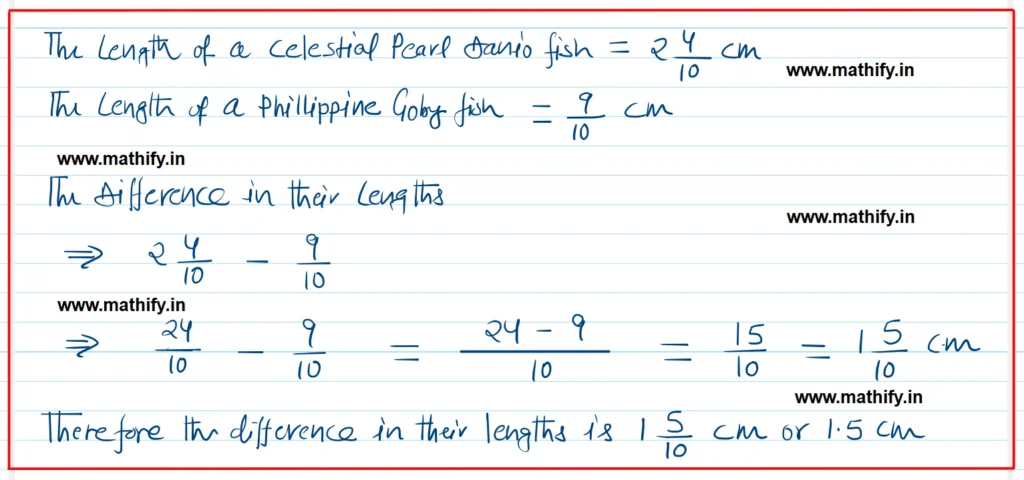 The Length of a Celestial Pearl Danio fish = 2 4/10 cm
www.mathify.in
The Length of a Phillippine Goby fish = 9/10 cm
www.mathify.in
The Difference in their Lengths
www.mathify.in
⇒ 2 4/10 - 9/10
www.mathify.in
⇒ 24/10 - 9/10 = 24 - 9/10 = 15/10 = 1 5/10 cm
www.mathify.in
Therefore the difference in their lengths is 1 5/10 cm or 1.5 cm